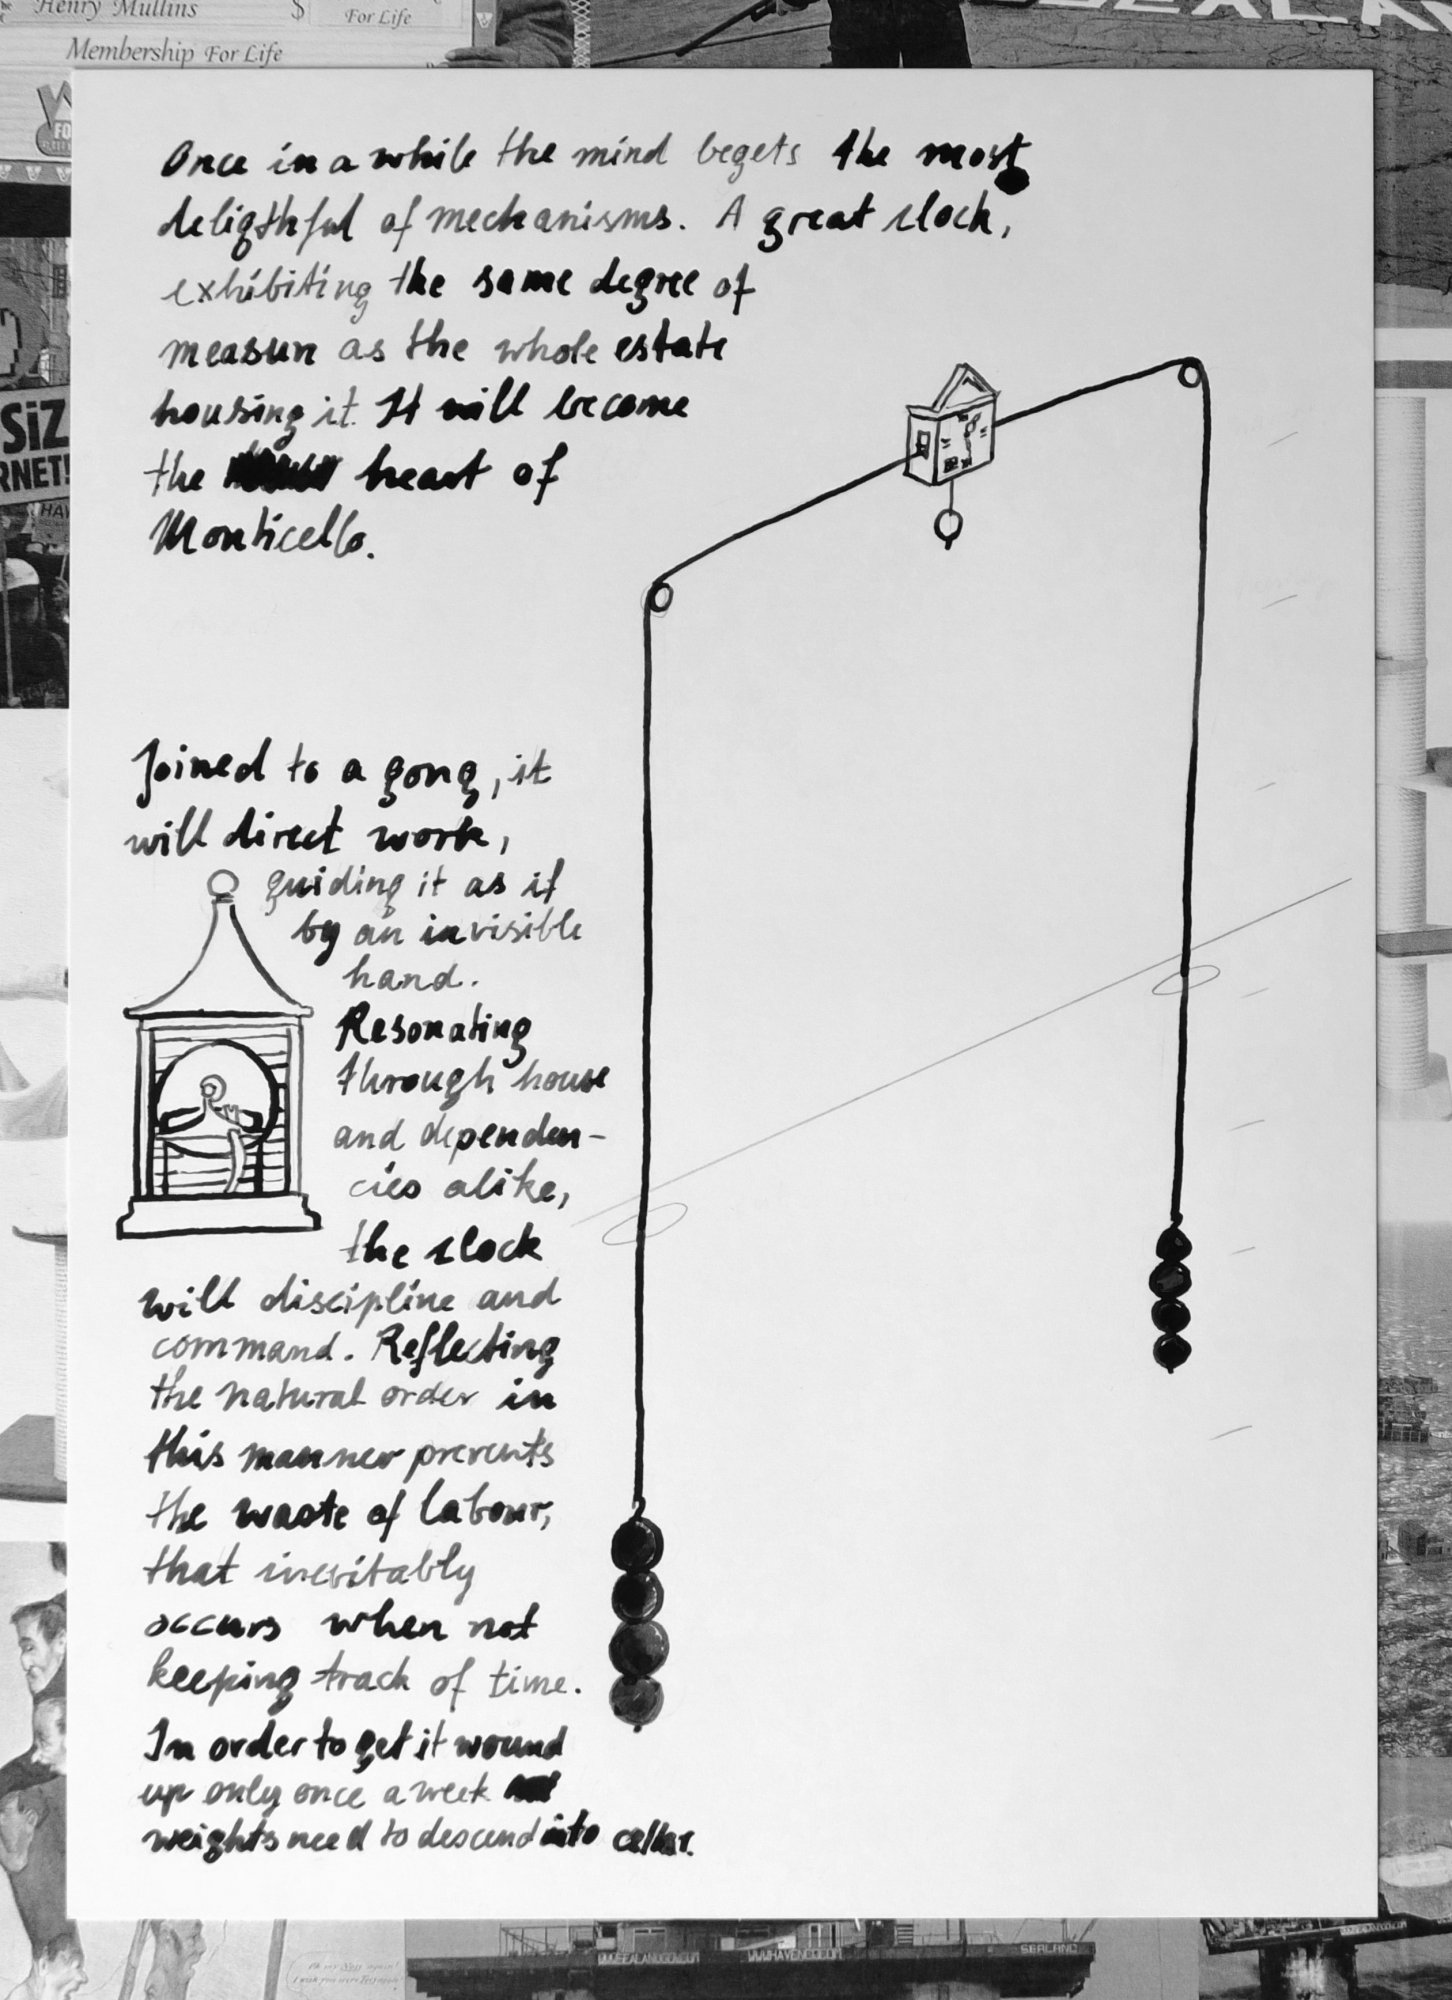 Henry Mullins $
For Life
Membership For Life
FO
SiZ
RNET!
HAV
Once in a while the mind begets the most
deligthful of mechanisms. A great clock,
exhibiting the same degree of
measure as the whole estate
housing it. It will become
the heart of
Monticello.
Joined to a gong, it
will direct work,
guiding it as if
by an invisible
hand.
Resonating
through house
and dependen-
cies alike,
the clock
will discipline and
command. Reflecting
the natural order in
this manner prevents
the waste of labour,
that inevitably
occurs when not
keeping track of time.
In order to get it wound
up only once a week
weights need to descend into cellar.
WWW.HAVENCO.COM
SEALAND